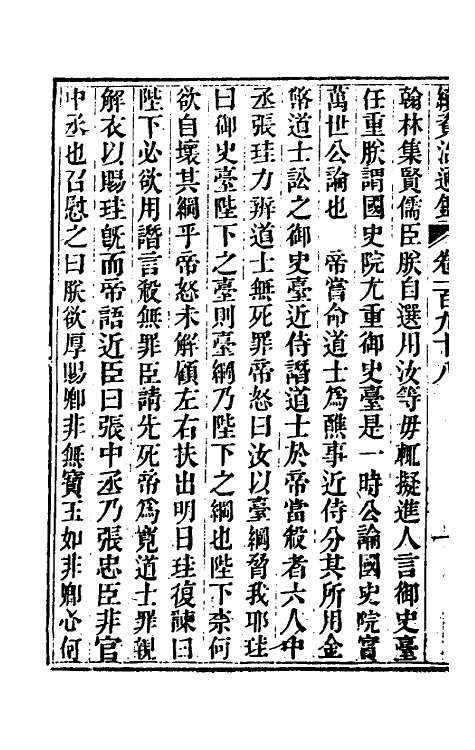 續資治通鑑 卷一百九十八 一
翰林集賢儒臣朕自選用汝等毋輒擬進人言御史臺
任重朕謂國史院尤重御史臺是一時公論國史院實
萬世公論也 帝嘗命道士爲醮事近侍分其所用金
幣道士訟之御史臺近侍譖道士於帝當殺者六人中
丞張珪力辨道士無死罪帝怒曰汝以臺綱脅我耶珪
曰御史臺陛下之臺則臺綱乃陛下之綱也陛下柰何
欲自壞其綱乎帝怒未解顧左右扶出明日珪復諫曰
陛下必欲用譖言殺無罪臣請先死帝爲寬道士罪親
解衣以賜珪旣而帝語近臣曰張中丞乃張忠臣非官
中丞也召慰之曰朕欲厚賜卿非無寶玉如非卿心何